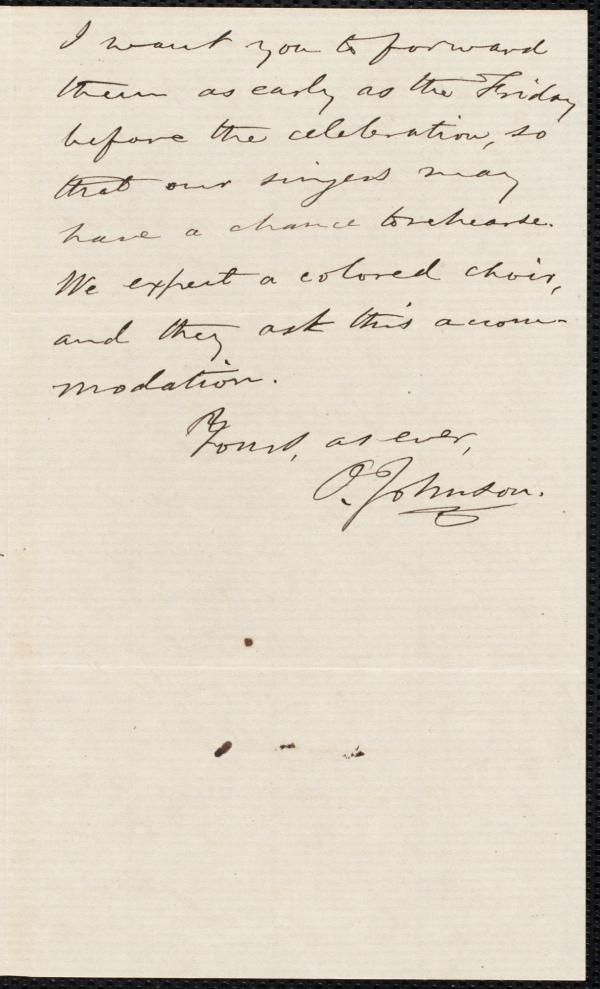 I want you to forward
them as early as the Friday
before the celebration, so
that our singers may
have a chance to rehearse.
We expect a colored choir,
and they ask this accom-
modation.
Yours, as ever,
O. Johnson.